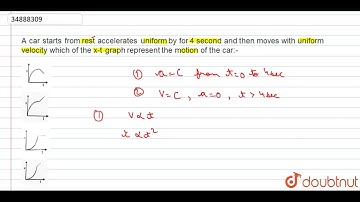 34888309
A car starts from rest accelerates uniform by for 4 second and then moves with uniform
velocity which of the x-t graph represent the motion of the car:-
① a=C from t=0 to 4sec
② V=C, a=0, t>4sec
① V∝t
x∝t²
doubtnut